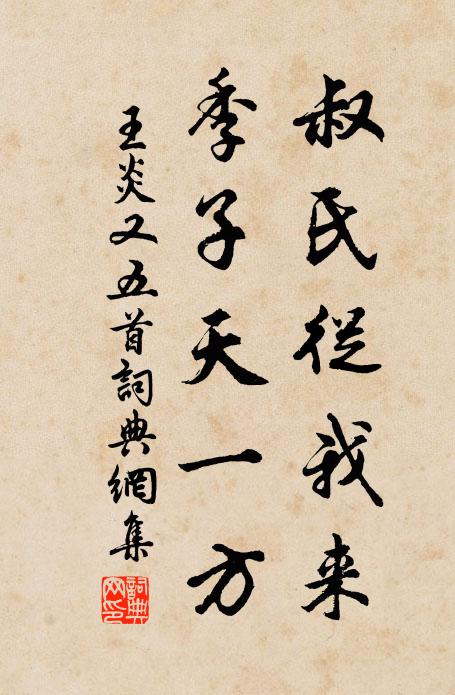 叔氏從我来
季子天一方
王炎又五首詞典網集
詞典网印